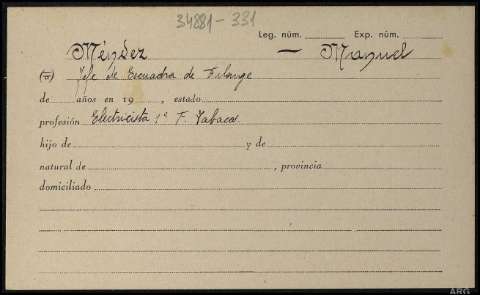 34881-331
Leg. núm. Exp. núm.
Méndez — Manuel
(a) Jefe de Escuadra de Falange
de años en 19 , estado
profesión Electricista 1ª F. Tabacos
hijo de y de
natural de , provincia
domiciliado
ARG